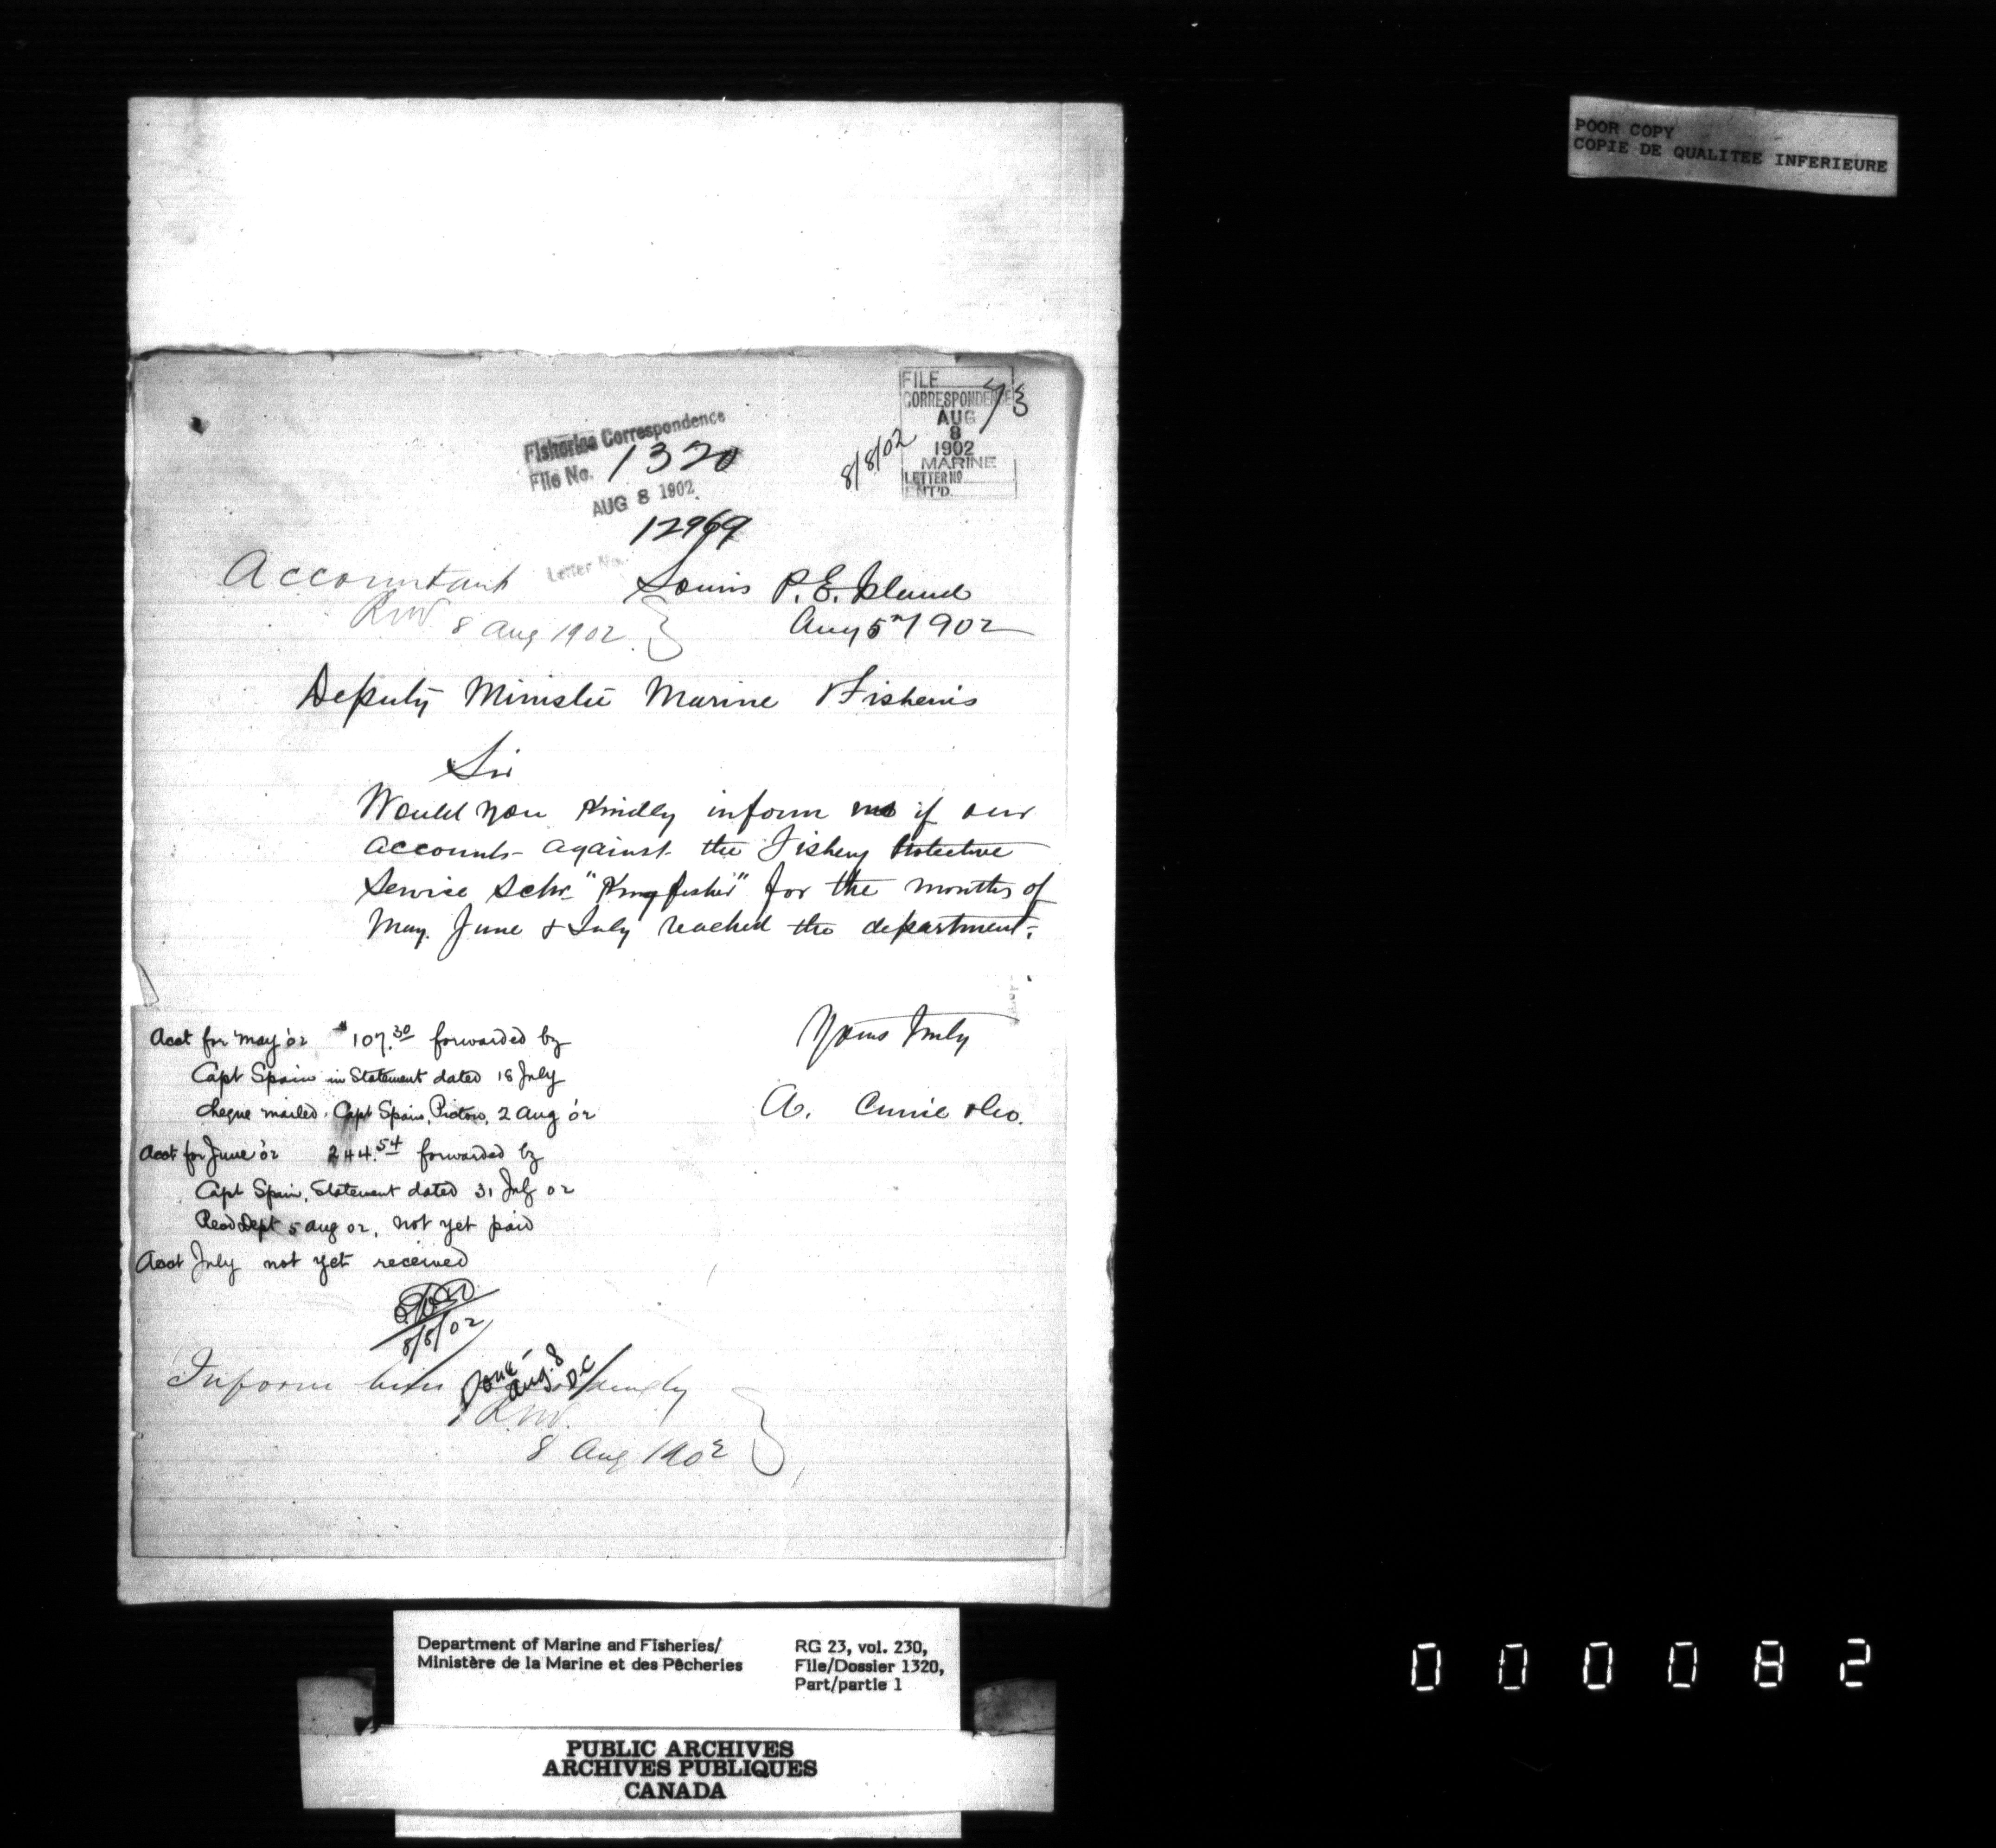 POOR COPY
COPIE DE QUALITEE INFERIEURE
FILE
CORRESPONDENCE
AUG
8
1902
MARINE
LETTER No
ENT'D.
73
8/8/02
Fisheries Correspondence
File No. 1320
AUG 8 1902
12969
Letter No.
Accountant
RW
8 Aug 1902
Souris P. E. Island
Aug 5th 1902
Deputy Minister Marine & Fisheries
Sir
Would you kindly inform me if our
accounts against the Fishery Protective
Service Schr "Kingfisher" for the months of
May. June & July reached the department.
Yours Truly
A. Currie & Co.
Acct for May '02 $107.30 forwarded by
Capt Spain in Statement dated 18 July
cheque mailed Capt Spain, Pictou, 2 Aug '02
Acct for June '02 244.54 forwarded by
Capt Spain, Statement dated 31 July 02
Recd Dept 5 Aug 02, not yet paid
Acct July not yet received
8/8/02
Inform him
Done
Aug. 8
D.C
RW.
8 Aug 1902
Department of Marine and Fisheries/
Ministère de la Marine et des Pêcheries
RG 23, vol. 230,
File/Dossier 1320,
Part/partie 1
PUBLIC ARCHIVES
ARCHIVES PUBLIQUES
CANADA
000082